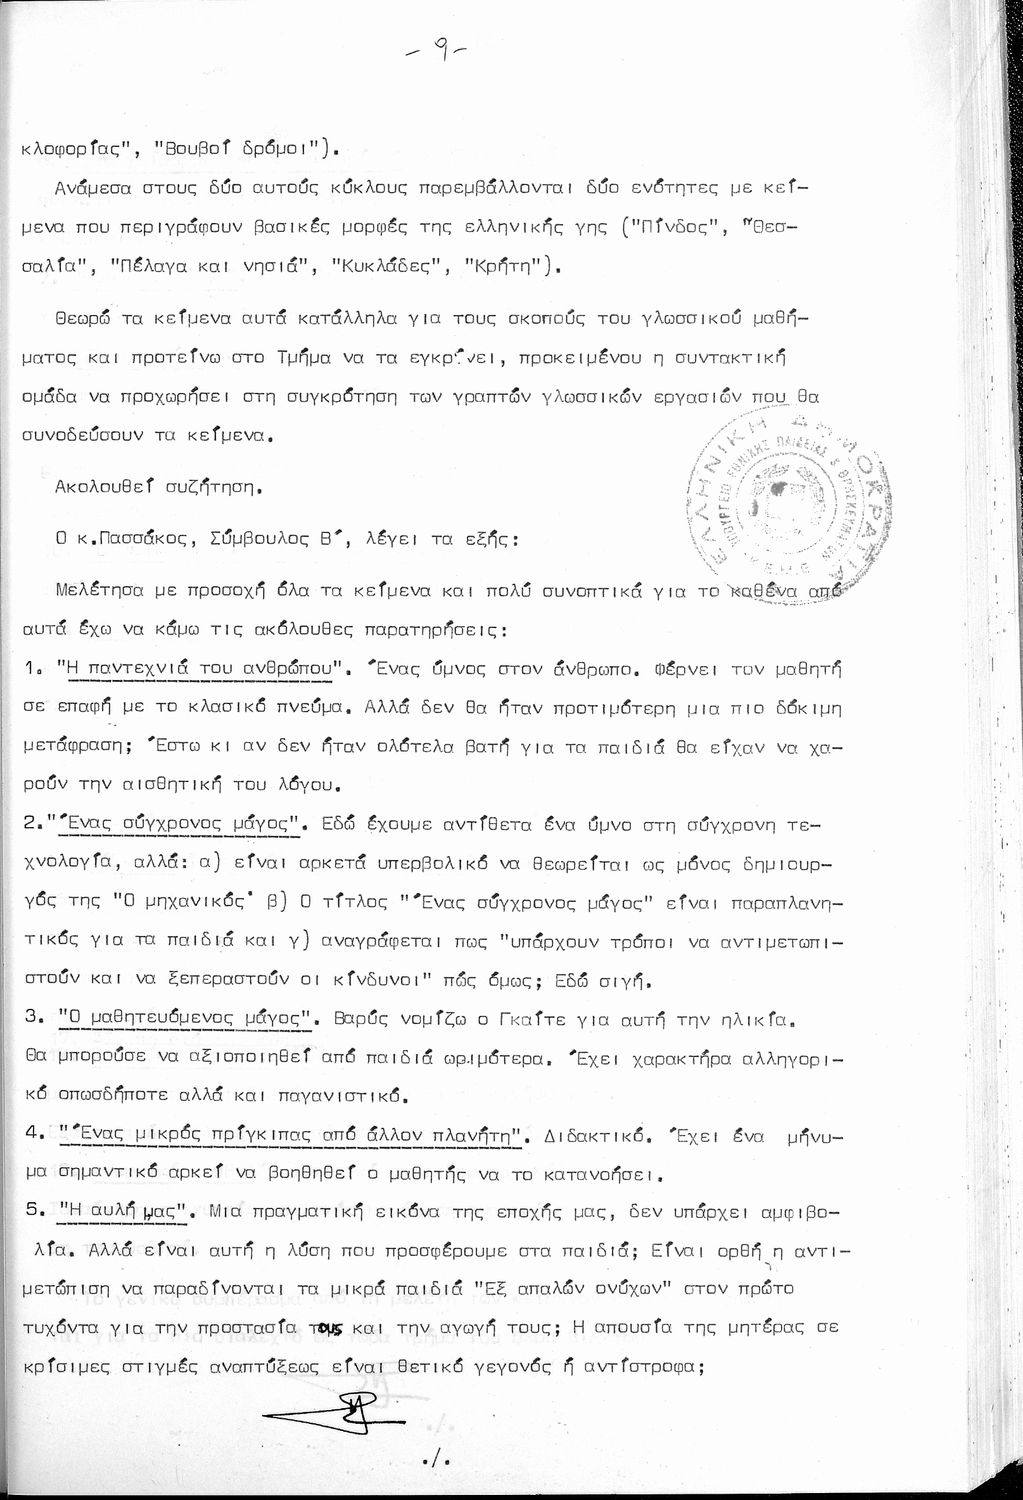 - 9 -
κλοφορίας", "Βουβοί δρόμοι").
Ανάμεσα στους δύο αυτούς κύκλους παρεμβάλλονται δύο ενότητες με κεί-
μενα που περιγράφουν βασικές μορφές της ελληνικής γης ("Πίνδος", "Θεσ-
σαλία", "Πέλαγα και νησιά", "Κυκλάδες", "Κρήτη").
Θεωρώ τα κείμενα αυτά κατάλληλα για τους σκοπούς του γλωσσικού μαθή-
ματος και προτείνω στο Τμήμα να τα εγκρίνει, προκειμένου η συντακτική
ομάδα να προχωρήσει στη συγκρότηση των γραπτών γλωσσικών εργασιών που θα
συνοδεύσουν τα κείμενα.
ΕΛΛΗΝΙΚΗ ΔΗΜΟΚΡΑΤΙΑ
ΥΠΟΥΡΓΕΙΟ ΕΘΝΙΚΗΣ ΠΑΙΔΕΙΑΣ & ΘΡΗΣΚΕΥΜΑΤΩΝ
Κ.Ε.Μ.Ε
Ακολουθεί συζήτηση.
Ο κ.Πασσάκος, Σύμβουλος Β΄, λέγει τα εξής:
Μελέτησα με προσοχή όλα τα κείμενα και πολύ συνοπτικά για το καθένα από
αυτά έχω να κάμω τις ακόλουθες παρατηρήσεις:
1. "Η παντεχνιά του ανθρώπου". Ένας ύμνος στον άνθρωπο. Φέρνει τον μαθητή
σε επαφή με το κλασικό πνεύμα. Αλλά δεν θα ήταν προτιμότερη μια πιο δόκιμη
μετάφραση; Έστω κι αν δεν ήταν ολότελα βατή για τα παιδιά θα είχαν να χα-
ρούν την αισθητική του λόγου.
2."Ένας σύγχρονος μάγος". Εδώ έχουμε αντίθετα ένα ύμνο στη σύγχρονη τε-
χνολογία, αλλά: α) είναι αρκετά υπερβολικό να θεωρείται ως μόνος δημιουρ-
γός της "Ο μηχανικός" β) Ο τίτλος "Ένας σύγχρονος μάγος" είναι παραπλανη-
τικός για τα παιδιά και γ) αναγράφεται πως "υπάρχουν τρόποι να αντιμετωπι-
στούν και να ξεπεραστούν οι κίνδυνοι" πώς όμως; Εδώ σιγή.
3. "Ο μαθητευόμενος μάγος". Βαρύς νομίζω ο Γκαίτε για αυτή την ηλικία.
Θα μπορούσε να αξιοποιηθεί από παιδιά ωριμότερα. Έχει χαρακτήρα αλληγορι-
κό οπωσδήποτε αλλά και παγανιστικό.
4. "Ένας μικρός πρίγκιπας από άλλον πλανήτη". Διδακτικό. Έχει ένα μήνυ-
μα σημαντικό αρκεί να βοηθηθεί ο μαθητής να το κατανοήσει.
5. "Η αυλή μας". Μια πραγματική εικόνα της εποχής μας, δεν υπάρχει αμφιβο-
λία. Αλλά είναι αυτή η λύση που προσφέρουμε στα παιδιά; Είναι ορθή η αντι-
μετώπιση να παραδίνονται τα μικρά παιδιά "Εξ απαλών ονύχων" στον πρώτο
τυχόντα για την προστασία τους και την αγωγή τους; Η απουσία της μητέρας σε
κρίσιμες στιγμές αναπτύξεως είναι θετικό γεγονός ή αντίστροφα;
./.